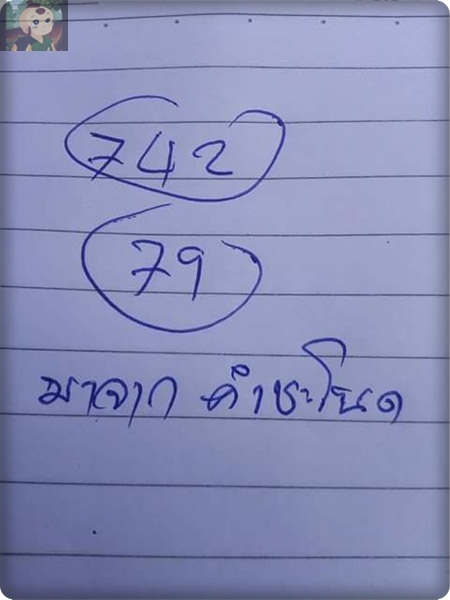 742
79
มาจาก คำชะโนด